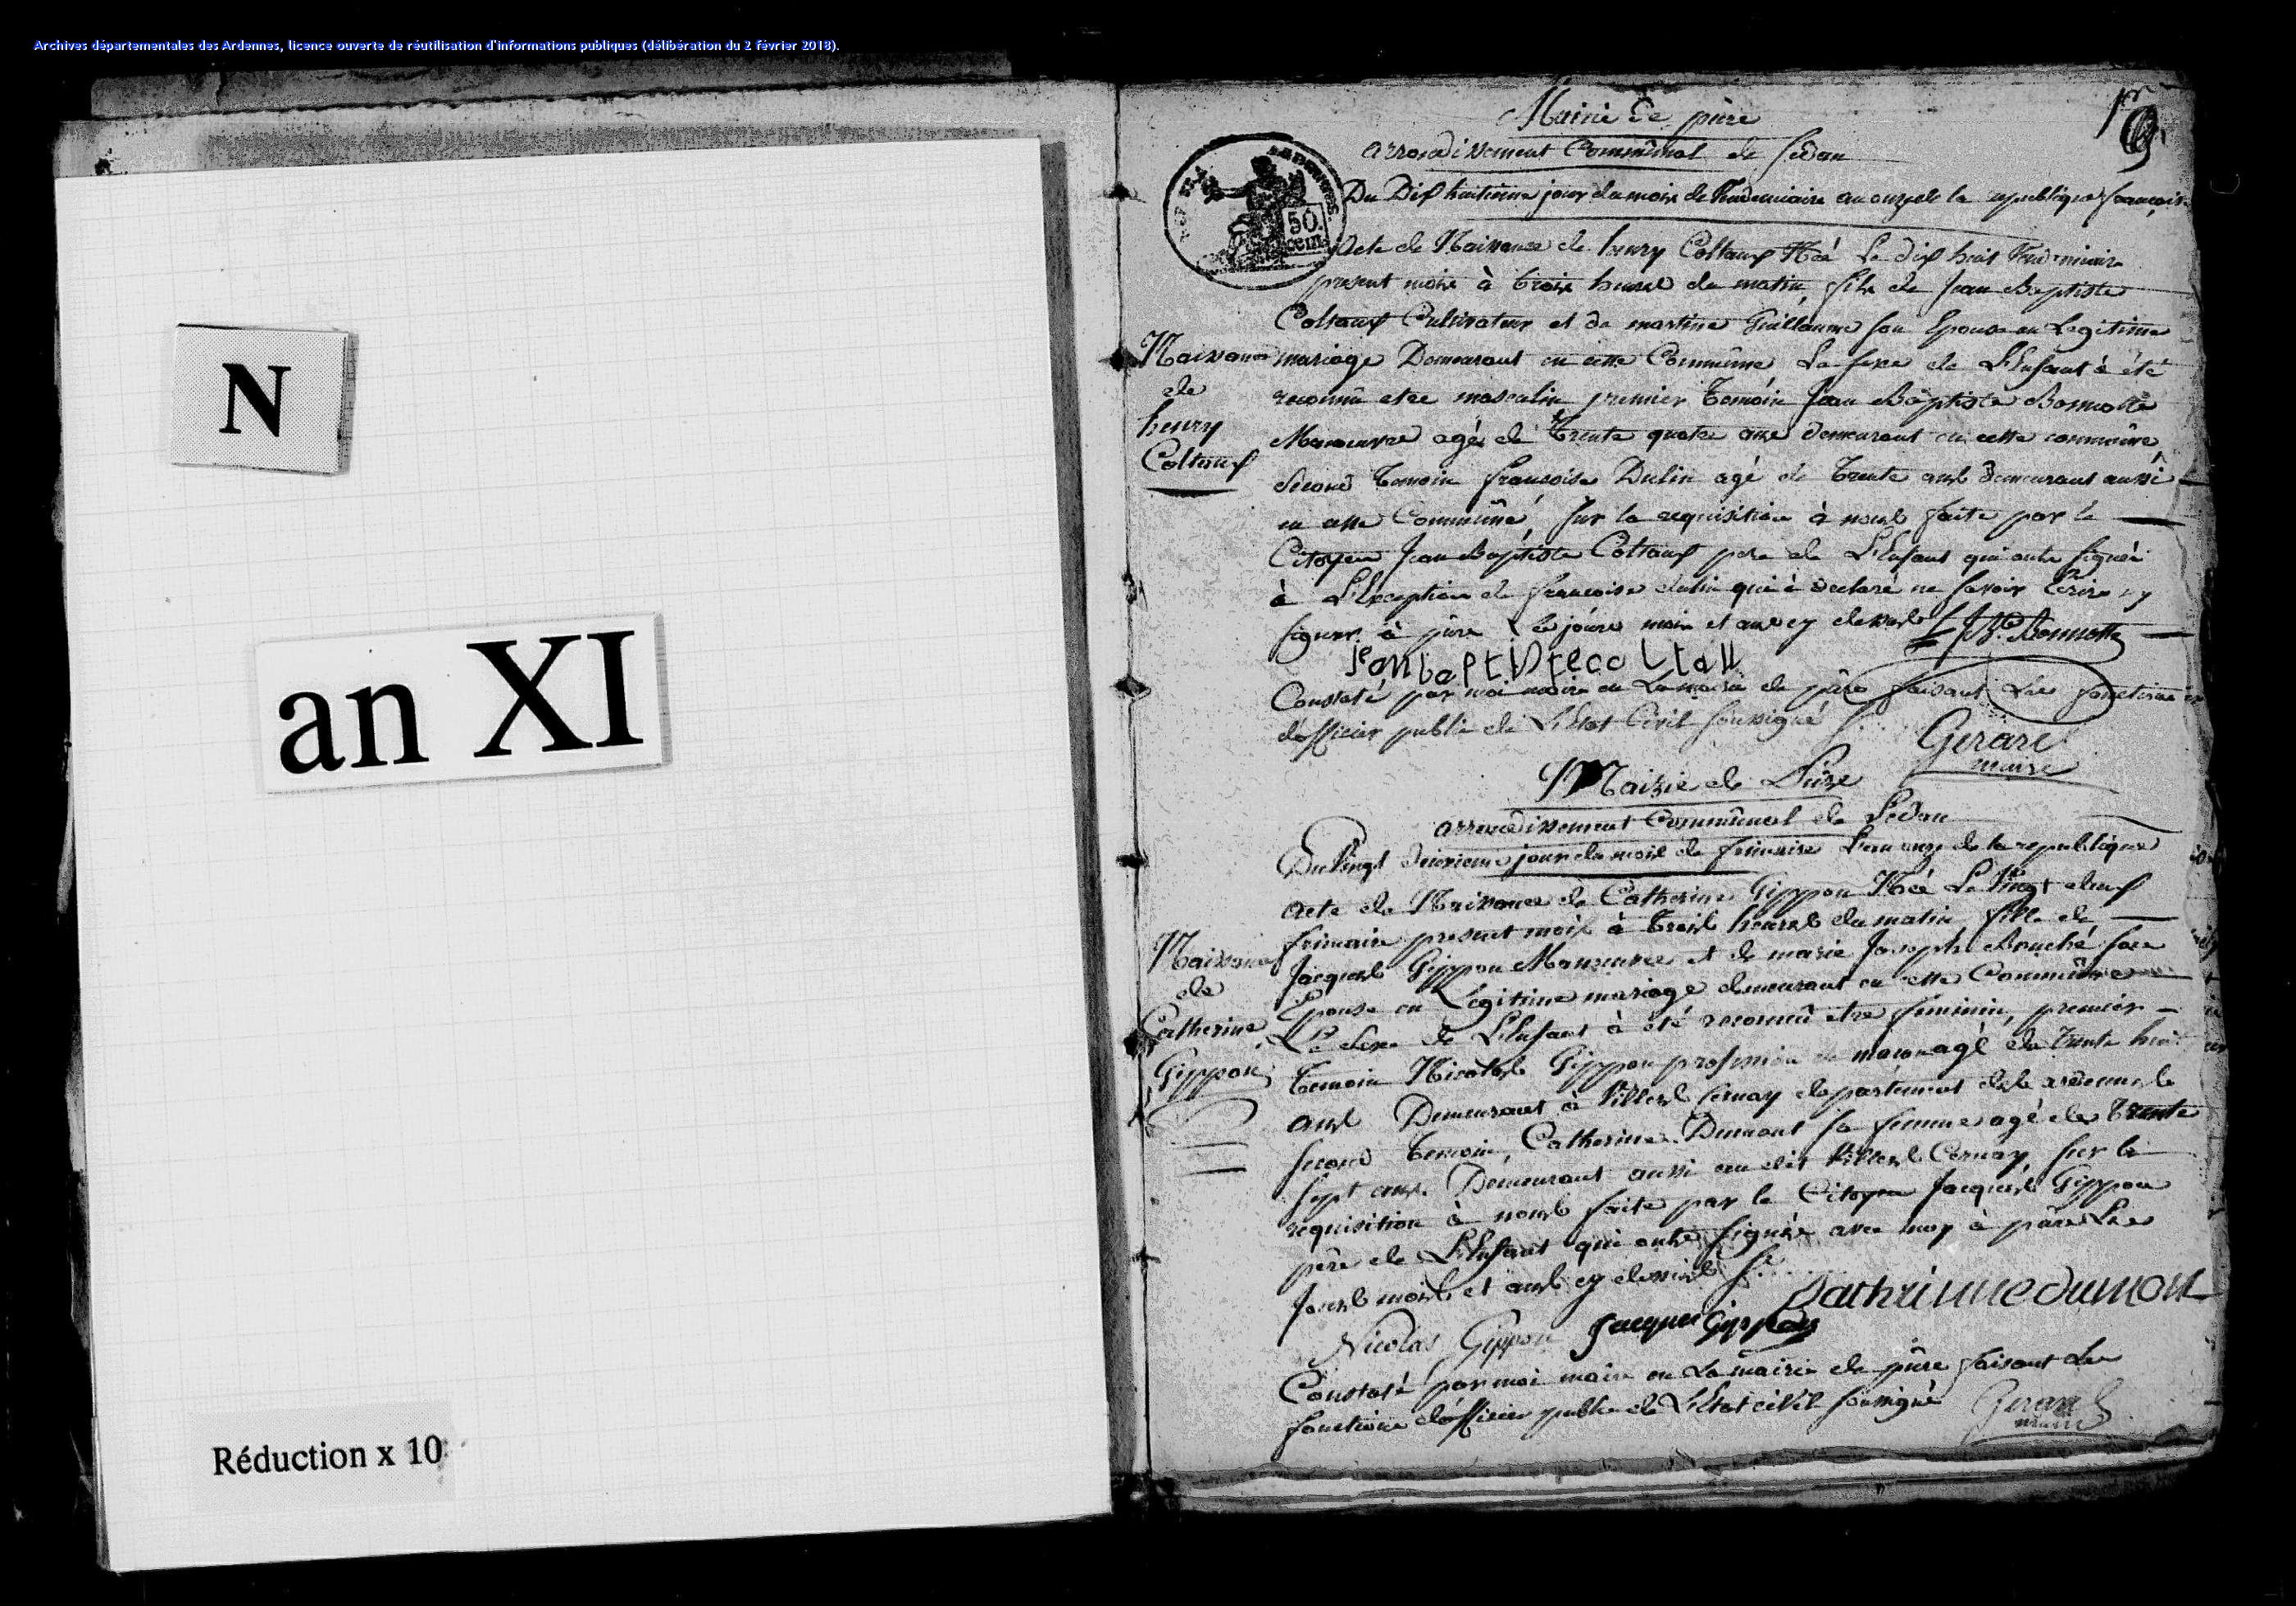 Archives départementales des Ardennes, licence ouverte de réutilisation d'informations publiques (délibération du 2 février 2018).
N
an XI
Réduction x 10
Mairie de pure
arrondissement Communal de sedan
Du Dix huitieme jour du mois de Vendemiaire an onze de la republique francoise
50 cent
Acte de Naissance de henry Coltaux Née Le dix huit Vendemiaire
present mois à trois heures du matin, fils de Jean Baptiste
Coltaux Cultivateur et de martine Guillaume son Epouse en Legitime
mariage Demeurant en cette Commûne Le sexe de L'Enfant à été
reconnû etre masculin premier temoin Jean Baptiste Bonnotte
Manoeuvre agé de trente quatre ans demeurant en cette commûne,
second temoin francoise Dulin agé de trente ans demeurant aussi
en cette Commûne, sur la requisition à nous faite par le
Citoyen Jean Baptiste Coltaux pere de L'Enfant qui onts signés
à L'Exception de francoise dulin qui à declaré ne savoir Ecrire ny
signer à pure les jours mois et ans cy dessus J B Bonnotte
jean baptiste coltau
Constaté par moi maire en La mairie de pure faisant Les fonctions
d'officier public de L'Etat Civil soussigné
Gerard
maire
Naissance
de
henry
Coltaux
Mairie de Pure
arrondissement Communal de Sedan
Du Vingt deuxieme jour du mois de frimaire L'an onze de la republique
acte de Naissance de Catherine Gippon Née Le Vingt deux
frimaire present mois à trois heures du matin, fille de
Jacques Gippon Manoeuvre et de marie Joseph Bouché son
Epouse en Legitime mariage demeurant en cette Commûne
Le sexe de L'Enfant à été reconnû etre feminin, premier
temoin Nicolas Gippon profession de macon agé de trente huit
ans Demeurant à Villers Cernay departement des ardennes
second temoin, Catherine Dumont sa femme agé de trente
sept ans Demeurant aussi au dit Villers Cernay, sur la
requisition à nous faite par le Citoyen Jacques Gippon
père de L'Enfant qui onts signés avec moy à pure Les
Jours mois et ans cy dessus
Catherinne dumont
Nicolas Gippon Jacques Gippon
Constaté par moi maire en La mairie de pure faisant Les
fonctions d'officier public de L'Etat civil soussigné
Gerard
maire
Naissance
de
Catherine
Gippon